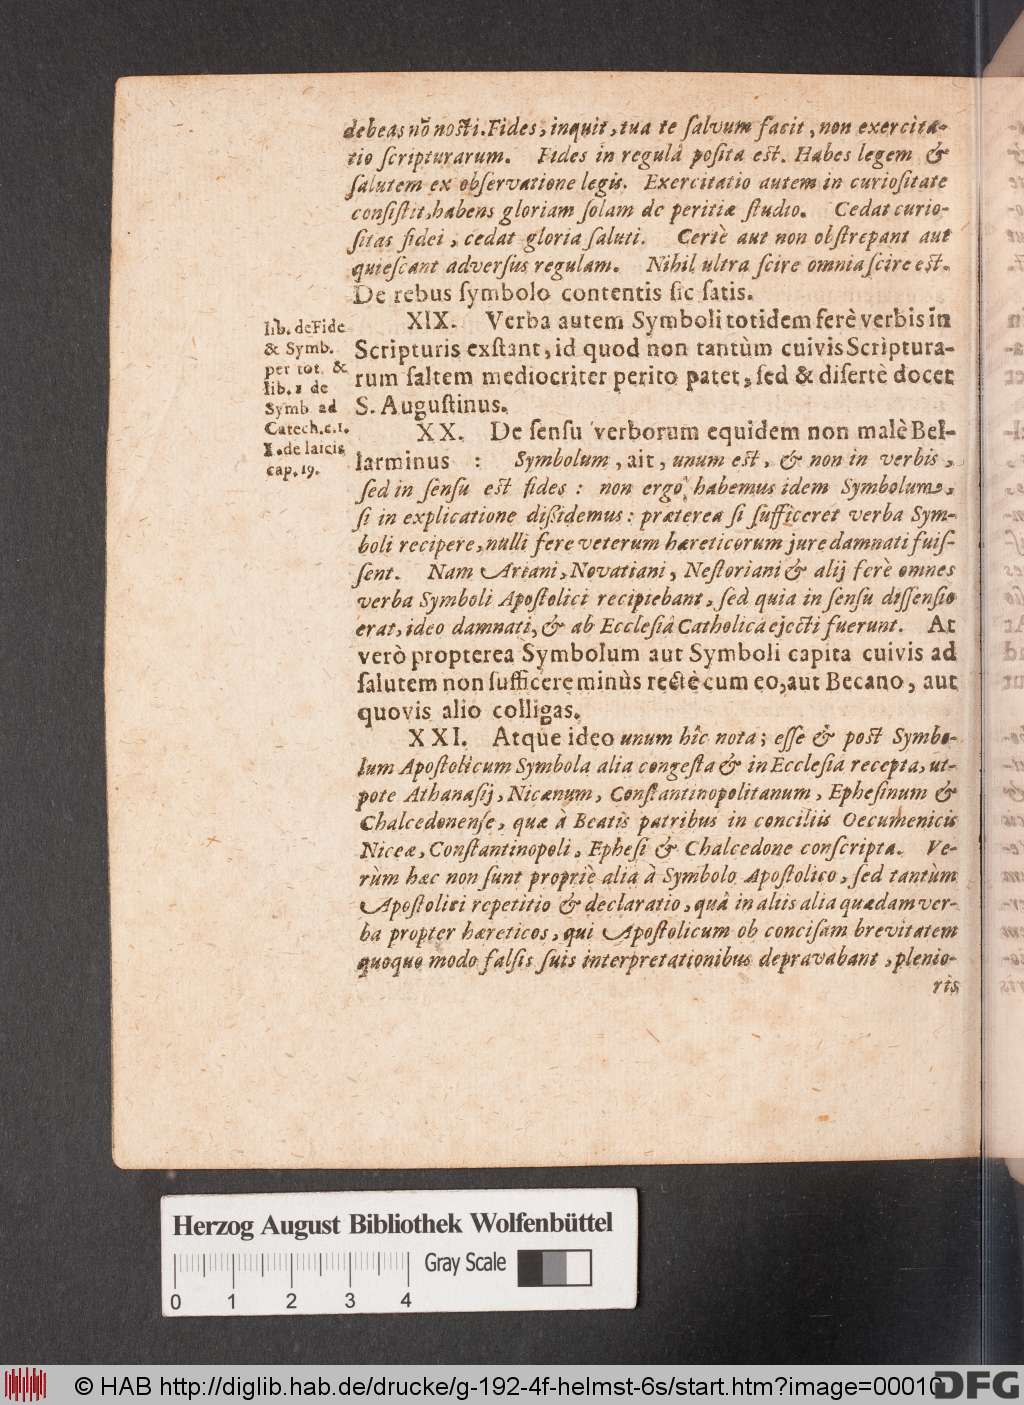 debeas nō nosti. Fides, inquit, tua te salvum facit, non exercita-
tio scripturarum. Fides in regulâ posita est. Habes legem &
salutem ex observatione legis. Exercitatio autem in curiositate
consistit, habens gloriam solam de peritiæ studio. Cedat curio-
sitas fidei, cedat gloria saluti. Certè aut non obstrepant aut
quiescant adversus regulam. Nihil ultra scire omnia scire est.
De rebus symbolo contentis sic satis.
XIX. Verba autem Symboli totidem ferè verbis in
Scripturis exstant, id quod non tantùm cuivis Scriptura-
rum saltem mediocriter perito patet, sed & disertè docet
S. Augustinus.
lib. de Fide
& Symb.
per tot. &
lib. 1 de
Symb. ad
Catech. c. 1.
XX. De sensu verborum equidem non malè Bel-
larminus : Symbolum, ait, unum est, & non in verbis,
sed in sensu est fides : non ergo habemus idem Symbolum,
si in explicatione dissidemus : præterea si sufficeret verba Sym-
boli recipere, nulli fere veterum hæreticorum jure damnati fuis-
sent. Nam Ariani, Novatiani, Nestoriani & alij ferè omnes
verba Symboli Apostolici recipiebant, sed quia in sensu dissensio
erat, ideo damnati, & ab Ecclesiâ Catholicâ ejecti fuerunt. At
verò propterea Symbolum aut Symboli capita cuivis ad
salutem non sufficere minùs rectè cum eo, aut Becano, aut
quovis alio colligas.
I. de laicis
cap. 19.
XXI. Atque ideo unum hîc nota; esse & post Symbo-
lum Apostolicum Symbola alia congesta & in Ecclesia recepta, ut-
pote Athanasij, Nicænum, Constantinopolitanum, Ephesinum &
Chalcedonense, quæ à Beatis patribus in conciliis Oecumenicis
Niceæ, Constantinopoli, Ephesi & Chalcedone conscripta. Ve-
rùm hæc non sunt propriè alia à Symbolo Apostolico, sed tantùm
Apostolici repetitio & declaratio, quâ in aliis alia quædam ver-
ba propter hæreticos, qui Apostolicum ob concisam brevitatem
quoquo modo falsis suis interpretationibus depravabant, plenio-
ris
Herzog August Bibliothek Wolfenbüttel
Gray Scale
0 1 2 3 4
© HAB http://diglib.hab.de/drucke/g-192-4f-helmst-6s/start.htm?image=00010
DFG